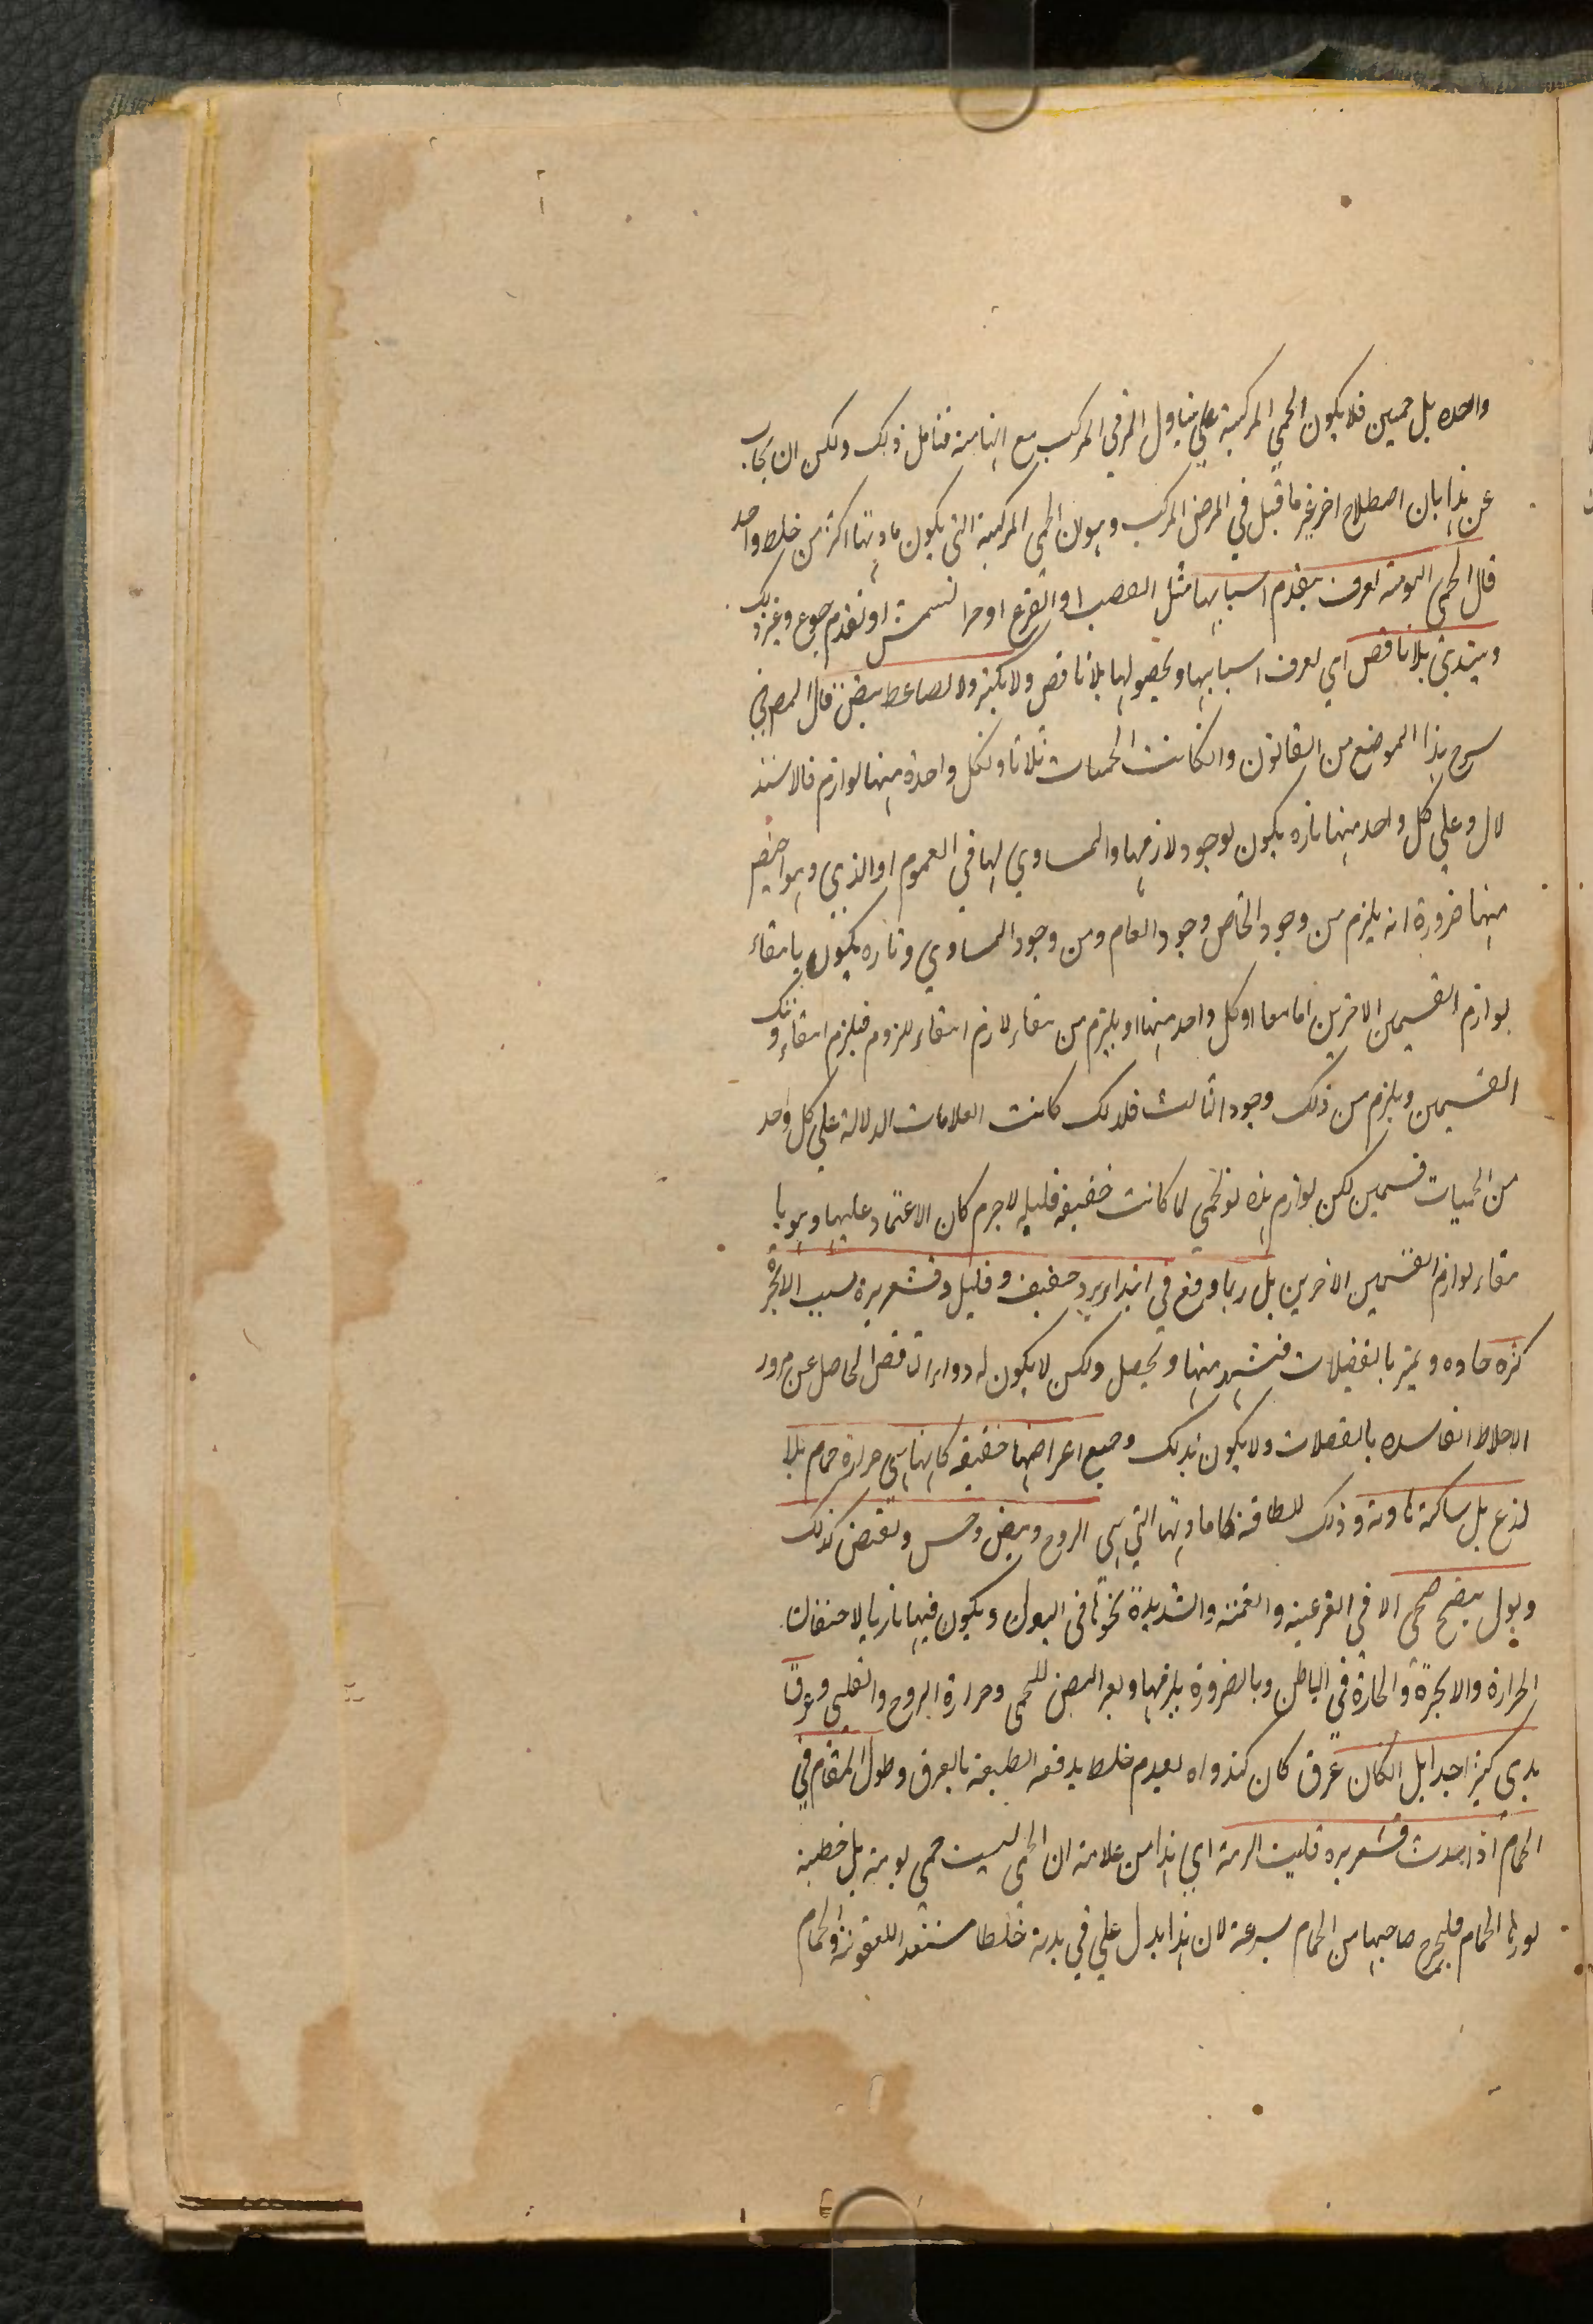 واحده بل حميين فلا يكون الحمي المركبة علي تناول المرض المركب مع انها منه فتأمل ذلك ولكن ان يجاب
عن هذا بان اصطلاح اخر غير ما قيل في المرض المركب وهو ان الحمي المركبة التي يكون مادتها اكثر من خلط واحد
قال الحمي اليومية تعرف بتقدم اسبابها مثل الغضب او الفزع او حر الشمس او تقدم جوع وغير ذلك
ويبتدئ بلا نافض اي تعرف اسبابها وبحصولها بلا نافض ولا بكثرة ولا تضاغط نبض قال المصرفي
شرح هذا الموضع من القانون وان كانت الحميات ثلاثا ولكل واحدة منها لوازم فالاستد
لال وعلي كل واحد منها تارة يكون لوجود لازمها والمساوي لها في العموم او الذي وهو اخص
منها ضرورة انه يلزم من وجود الخاص وجود العام ومن وجود المساوي وتاره يكون بانتفاء
لوازم القسمين الاخرين اما معا او كل واحد منها اويلزم من انتفاء لازم انتفاء ملزوم فيلزم انتفاء ذينك
القسمين ويلزم من ذلك وجود الثالث فلذلك كانت العلامات الدلالة علي كل واحد
من الحميات قسمين لكن لوازم هذه الحمي لما كانت خفيفه قليله لاجرم كان الاعتماد عليها وهو با
نتفاء لوازم القسمين الاخرين بل ربما وقع في ابتداء برد خفيف وقليل وقشعريرة لسبب الابخرة
كثره حاده ويمر بالعضلات فتشتد منها ويحصل ولكن لا يكون له دواء النافض الحاصل عن مرور
الاخلاط الفاسده بالعضلات ولا يكون بذلك وجميع اعراضها خفيفه كانها هي حرارة حمام بلا
لذع بل ساكنة هاوية وذلك للطافة مادتها التي هي الروح ونبض وحس وتقبض كذلك
وبول نضيج صحي الا في الفزعية والغمية والشديدة نحوها في البول ويكون فيها ناريا لاحتقان
الحرارة والابخرة والحارة في الباطن وبالضرورة يلزمها وبعد النبض للحمي وحرارة الروح والقلب وعرق
بدي كثيرا جدا بل ان كان عرق كان كنداوه لعدم خلط يدفعه الطبيعة بالعرق وطول المقام في
الحمام اذا حدث قشعريره فليست اليومية اي هذا من علامة ان الحمي ليست حمي يومية بل خلطية
لورثها الحمام فليخرج صاحبها من الحمام بسرعة لان هذا يدل علي في بدنه خلطا مستعدا للعفونة والحمام